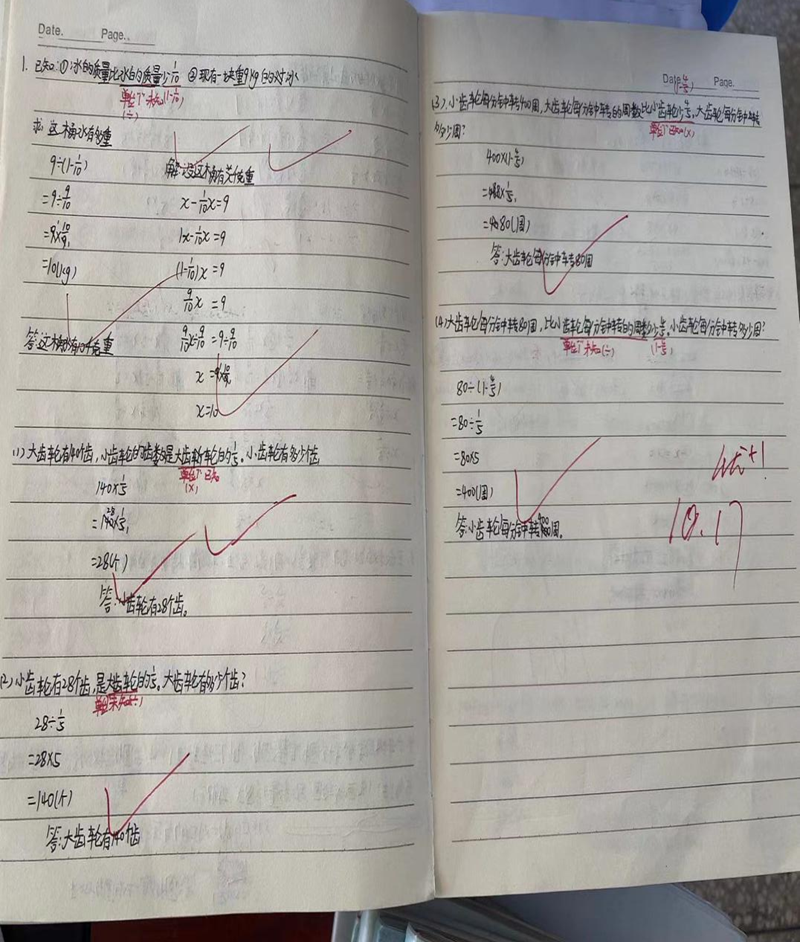 Date. Page.
1. 已知:①冰的质量比水的质量少1/10 ②现有一块重9kg的冰
单位"1"未知(1-1/10)
(÷)
求:这桶水有多重
9÷(1-1/10)
解:设这桶有x千克重
=9÷9/10
x-1/10x=9
=9×10/9
1x-1/10x=9
=10(kg)
(1-1/10)x=9
9/10x=9
答:这桶水有10千克重
9/10x÷9/10=9÷9/10
x=9×10/9
x=10
(1)大齿轮有140个齿,小齿轮的齿数是大齿轮的1/5。小齿轮有多少个齿
单位"1"已知
(×)
140×1/5
=140×1/5
=28(个)
答:小齿轮有28个齿。
(2)小齿轮有28个齿,是大齿轮的1/5。大齿轮有多少个齿?
单位"1"未知(÷)
28÷1/5
=28×5
=140(个)
答:大齿轮有140个齿
Date. Page.
(1-4/5)
(3)小齿轮每分钟转400周,大齿轮每分钟转的周数比小齿轮少4/5,大齿轮每分钟转
多少周?
单位"1"已知(×)
400×(1-4/5)
=400×1/5
=80(周)
答:大齿轮每分钟转80周
(4)大齿轮每分钟转80周,比小齿轮每分钟转的周数少4/5,小齿轮每分钟转多少周?
单位"1"未知(÷) (1-4/5)
80÷(1-4/5)
=80÷1/5
=80×5
=400(周)
答:小齿轮每分钟转400周。
10.17